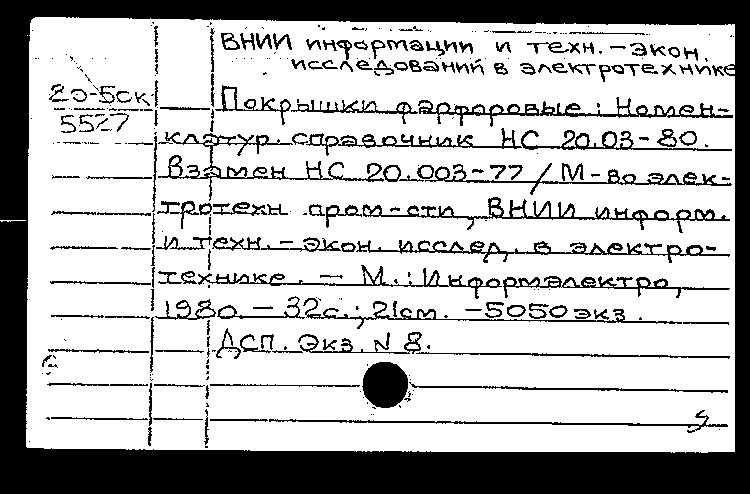 ВНИИ информации и техн. - экон.
исследований в электротехнике
20-5ск
5527
Покрышки фарфоровые : Номен-
клатур. справочник НС 20.03-80.
Взамен НС 20.003-77 / М-во элек-
тротехн пром-сти, ВНИИ информ.
и техн. - экон. исслед. в электро-
технике. - М. : Информэлектро,
1980. - 32с.; 21см. - 5050 экз.
ДСП. Экз. N 8.